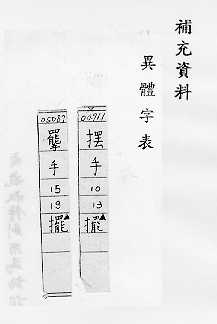 補充資料
異體字表
00911
摆
手
10
13
擺▲
05087
手
15
19
擺▲